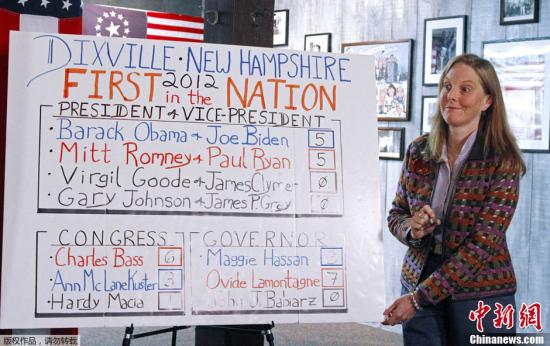 DIXVILLE · NEW HAMPSHIRE
FIRST 2012 in the NATION
PRESIDENT & VICE-PRESIDENT
· Barack Obama & Joe Biden 5
· Mitt Romney & Paul Ryan 5
· Virgil Goode & James Clymer 0
· Gary Johnson & James P. Gray 0
CONGRESS
· Charles Bass 6
· Ann McLane Kuster 3
· Hardy Macia 1
GOVERNOR
· Maggie Hassan
· Ovide Lamontagne 7
· John J. Babiarz 0
©REUTERS
版权作品,请勿转载
中新网
Chinanews.com